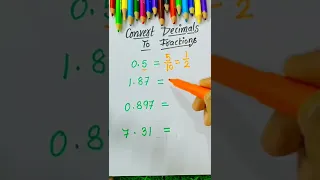 Convert Decimals
To Fractions
0.5 = 5/10 = 1/2
1.87 =
0.897 =
7.31 =